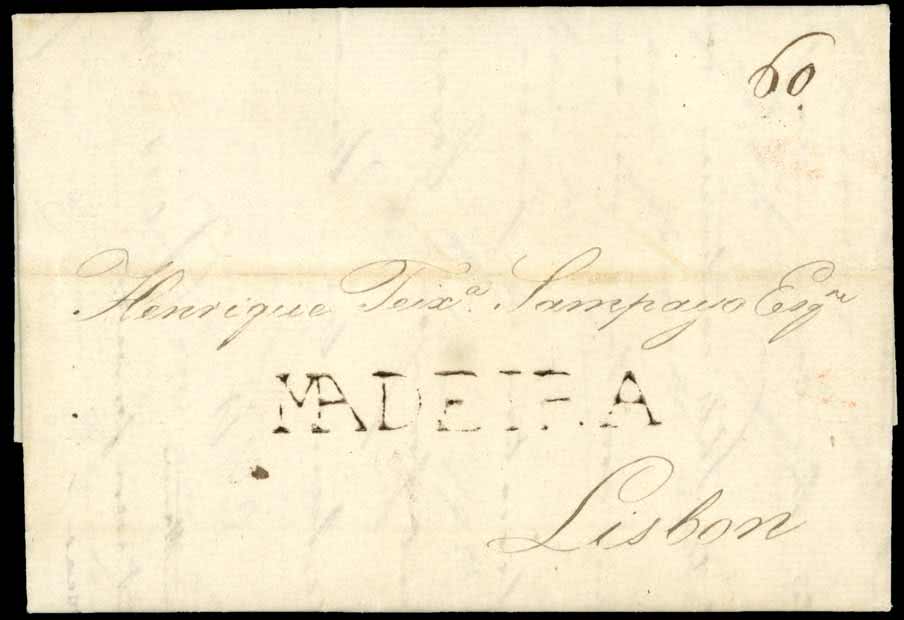 60.
Henrique Teixª. Sampayo Esqre
MADEIRA
Lisbon